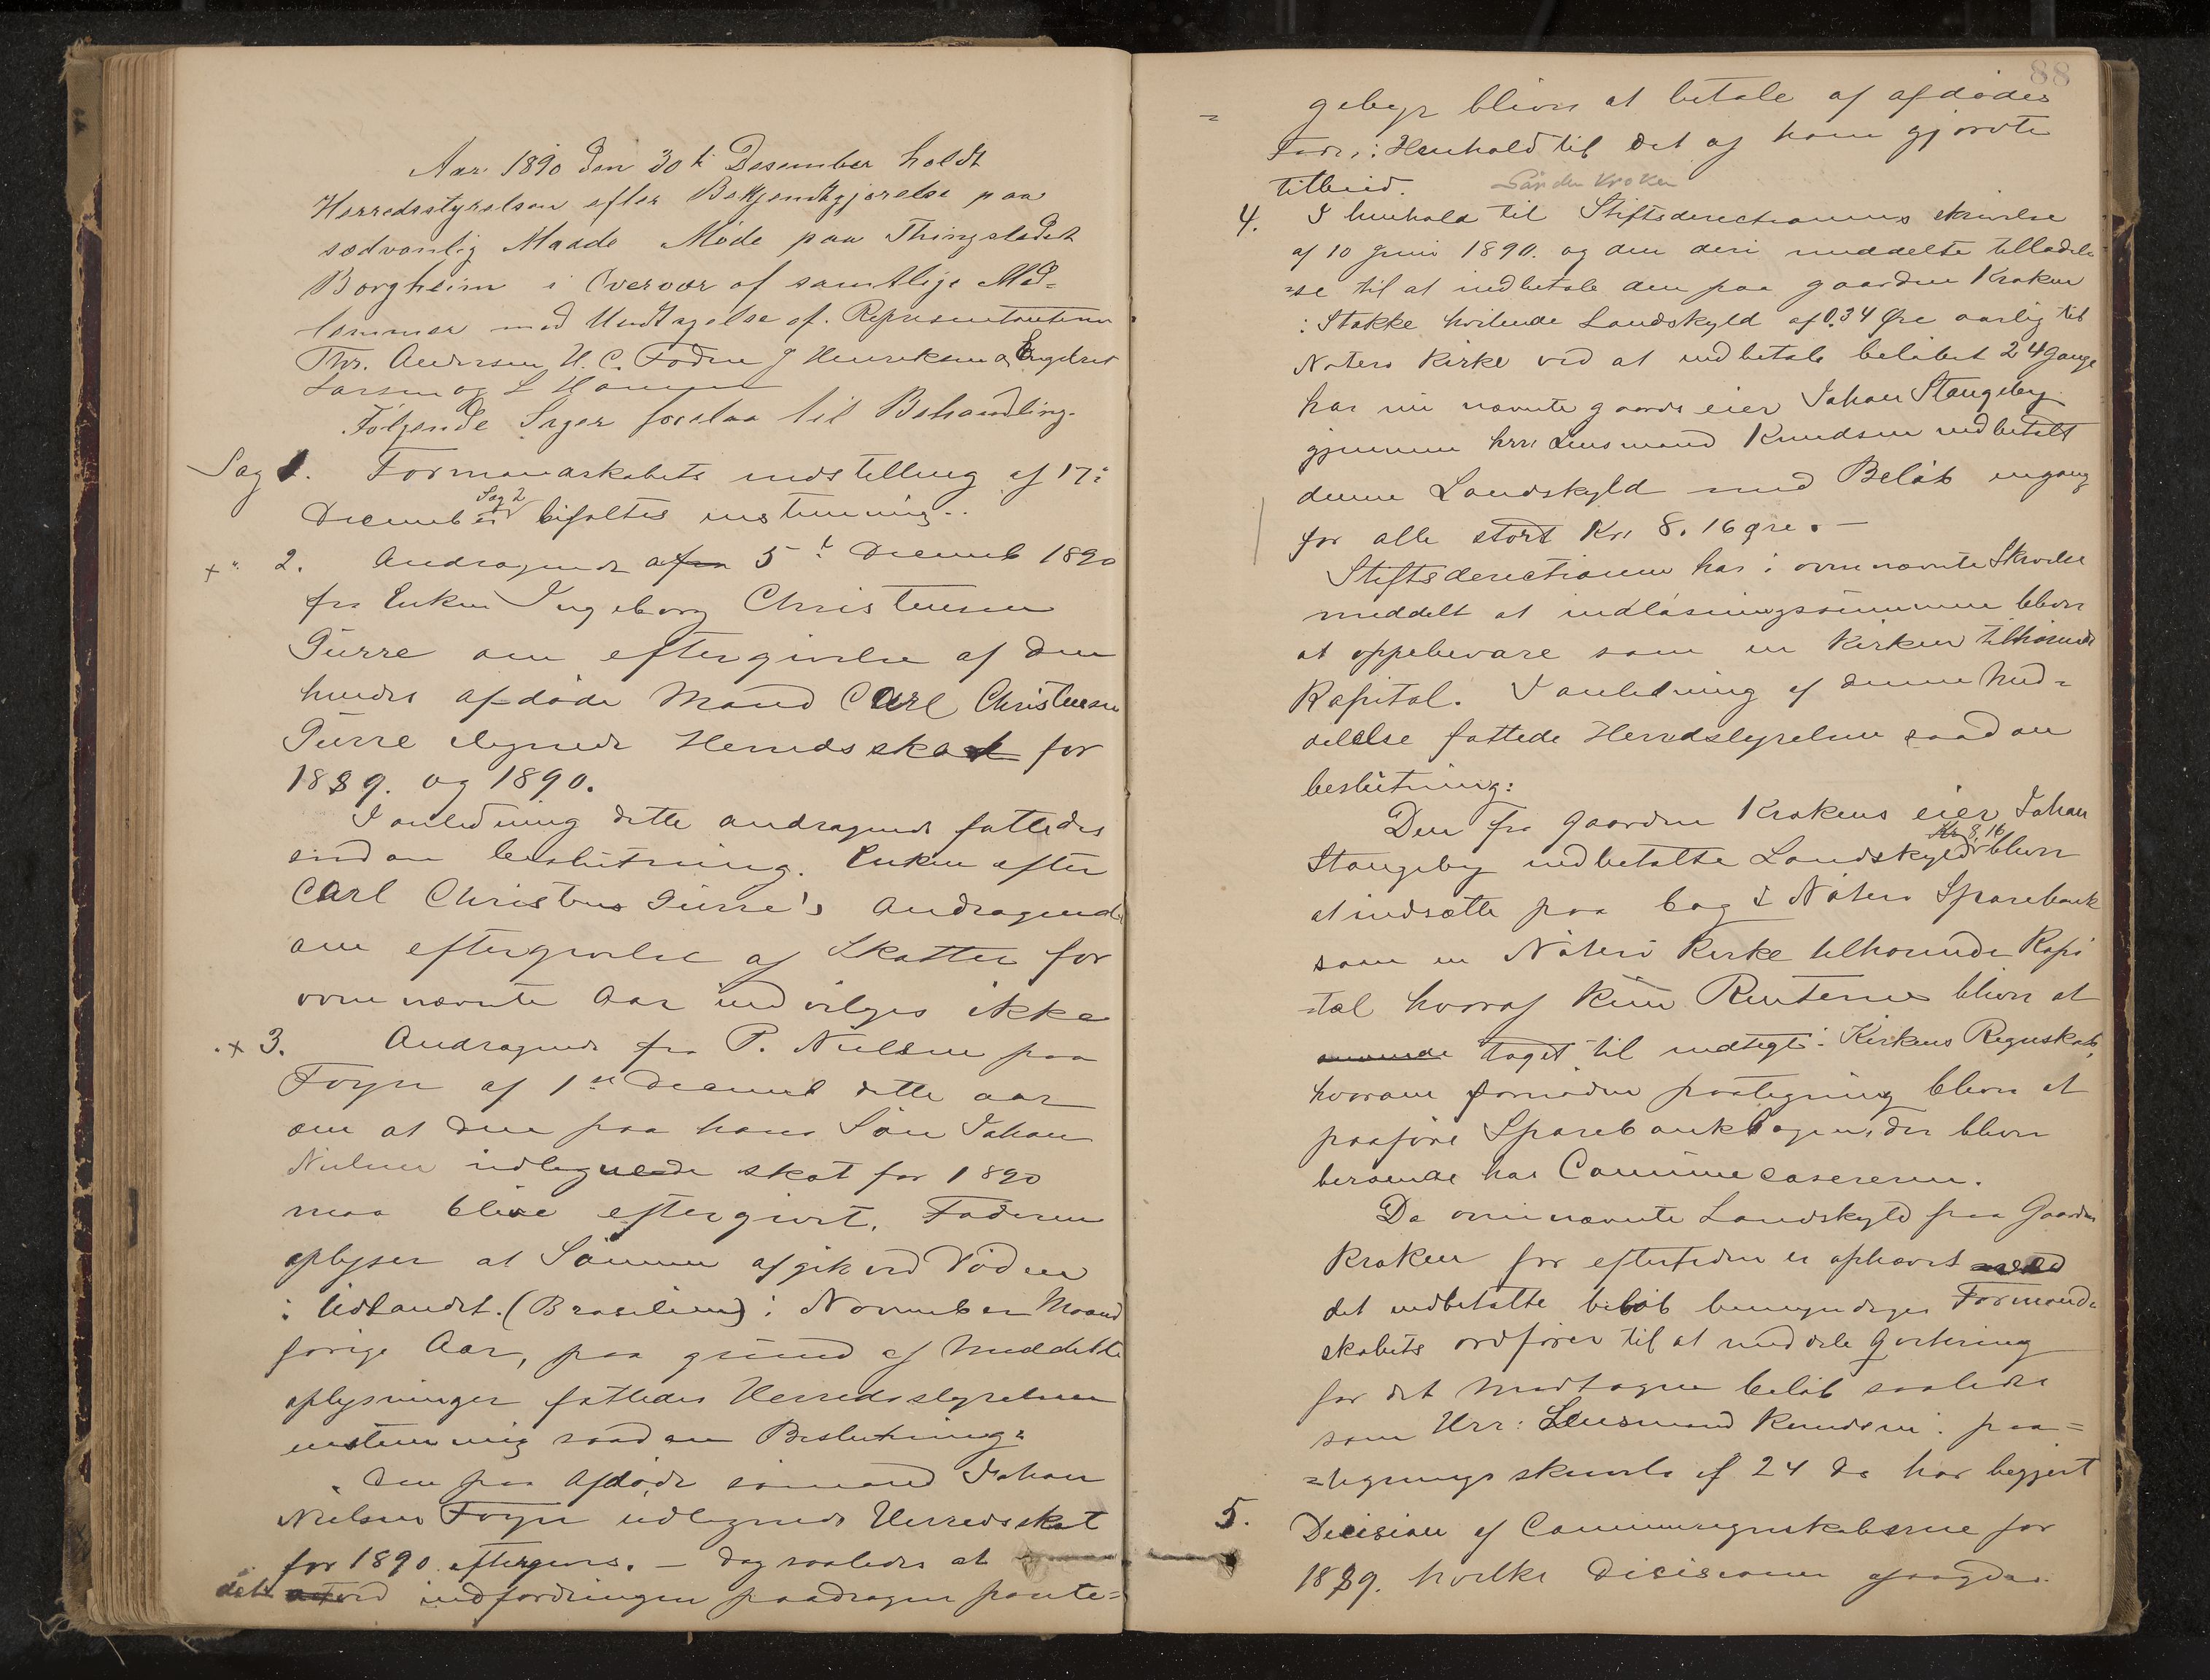 Aar 1890 den 30te Desember holdt
Herredsstyrelsen efter Bekjendtgjørelse paa
sædvanlig Maade Møde paa Thingstedet
Borgheim i Overvær af samtlige Med=
lemmer med Undtagelse af Representanterne
Thr. Andersen H. C. Foden J Henriksen og Engebret
Larsen og L Hansen
Følgende Sager forelaa til Behandling.
Sag 1. Formandskabets indstilling af 17:
December Sag 2 bifaltes enstemmig..
+ " 2. Andragende af 5t Decemb 1890
fra Enken Ingeborg Christensen
Gurre om eftergivelse af den
hendes afdøde Mand Carl Christensen
Gurre ilignede Herredsskat for
1889. og 1890.
I anledning dette andragende fattedes
sadan beslutning. Enken efter
Carl Christens Gurre's Andragende
om eftergivelse af Skatter for
ovennævnte Aar indvilges ikke
+ 3. Andragende fra P. Nielsen paa
Foyn af 1ste Decemb dette aar
om at den paa hans Søn Johan
Nielsen udlignede skat for 1890
maa blive eftergivet. Faderen
oplyser at Sønnen afgik ved Døden
i Udlandet. (Brasilien) i November Maaned
forige Aar, paa grund af Meddelte
oplysninger fattedes Herredsstyrelsen
enstemmig saadan Beslutning:
Den paa Afdøde sømand Johan
Nielsen Foyn udlignede Herredsskat
for 1890 eftergives. – dog saaledes at
det ved indfordringen paadragne pante=
88
gebyr bliver at betale af afdødes
Fader i Henhold til det af ham gjordte
tilbud. Søndre Kroken
4. I henhold til Stiftsderectionens skrivelse
af 10 Juni 1890. og den deri meddelte tilladel
=se til at indbetale den paa gaarden Kroken
i Stokke hvilende Landskyld af 0.34 Øre aarlig til
Nøterø Kirke ved at indbetale beløbet 24 Gange
har nu nævnte gaards eier Johan Stangeby
gjennem hrr Lensmand Knudsen indbetalt
denne Landskyld med Beløb engang
for alle stort Kr 8.16 øre. –
Stiftsderectionen har i ovennævnte Skrivelse
meddelt at indløsningssummen bliver
at oppebevare som en Kirken tilhørende
Kapital. I anledning af denne Med=
delelse fattede Herredsstyrelsen saadan
beslutning:
Den fra Gaarden Krokens eier Johan
Stangeby indbetalte Landskyld Kr 8,16 bliver
at indsætte paa bog i Nøterø Sparebank
som en Nøterø Kirke tilhørende Kapi
=tal hvoraf kun Renterne bliver at
taget til indtegt i Kirkens Regnskab,
hvorom fornøden paategning bliver at
paaføre Sparebankbogen, der bliver
beroende hos Communecasereren.
Da ovennævnte Landskyld paa Gaarden
Kroken for eftertiden er ophævet ved
det indbetalte beløb bemyndiges Formand=
skabets ordfører til at meddele Qvitering
for det Modtagne beløb saaledes
som Hrr: Lensmand Knudsen i paa=
=tegnings skrivelse af 24 ds har begjert
5. Decision af Communeregnskaberne for
1889. hvilke Decisioner afsagdes.